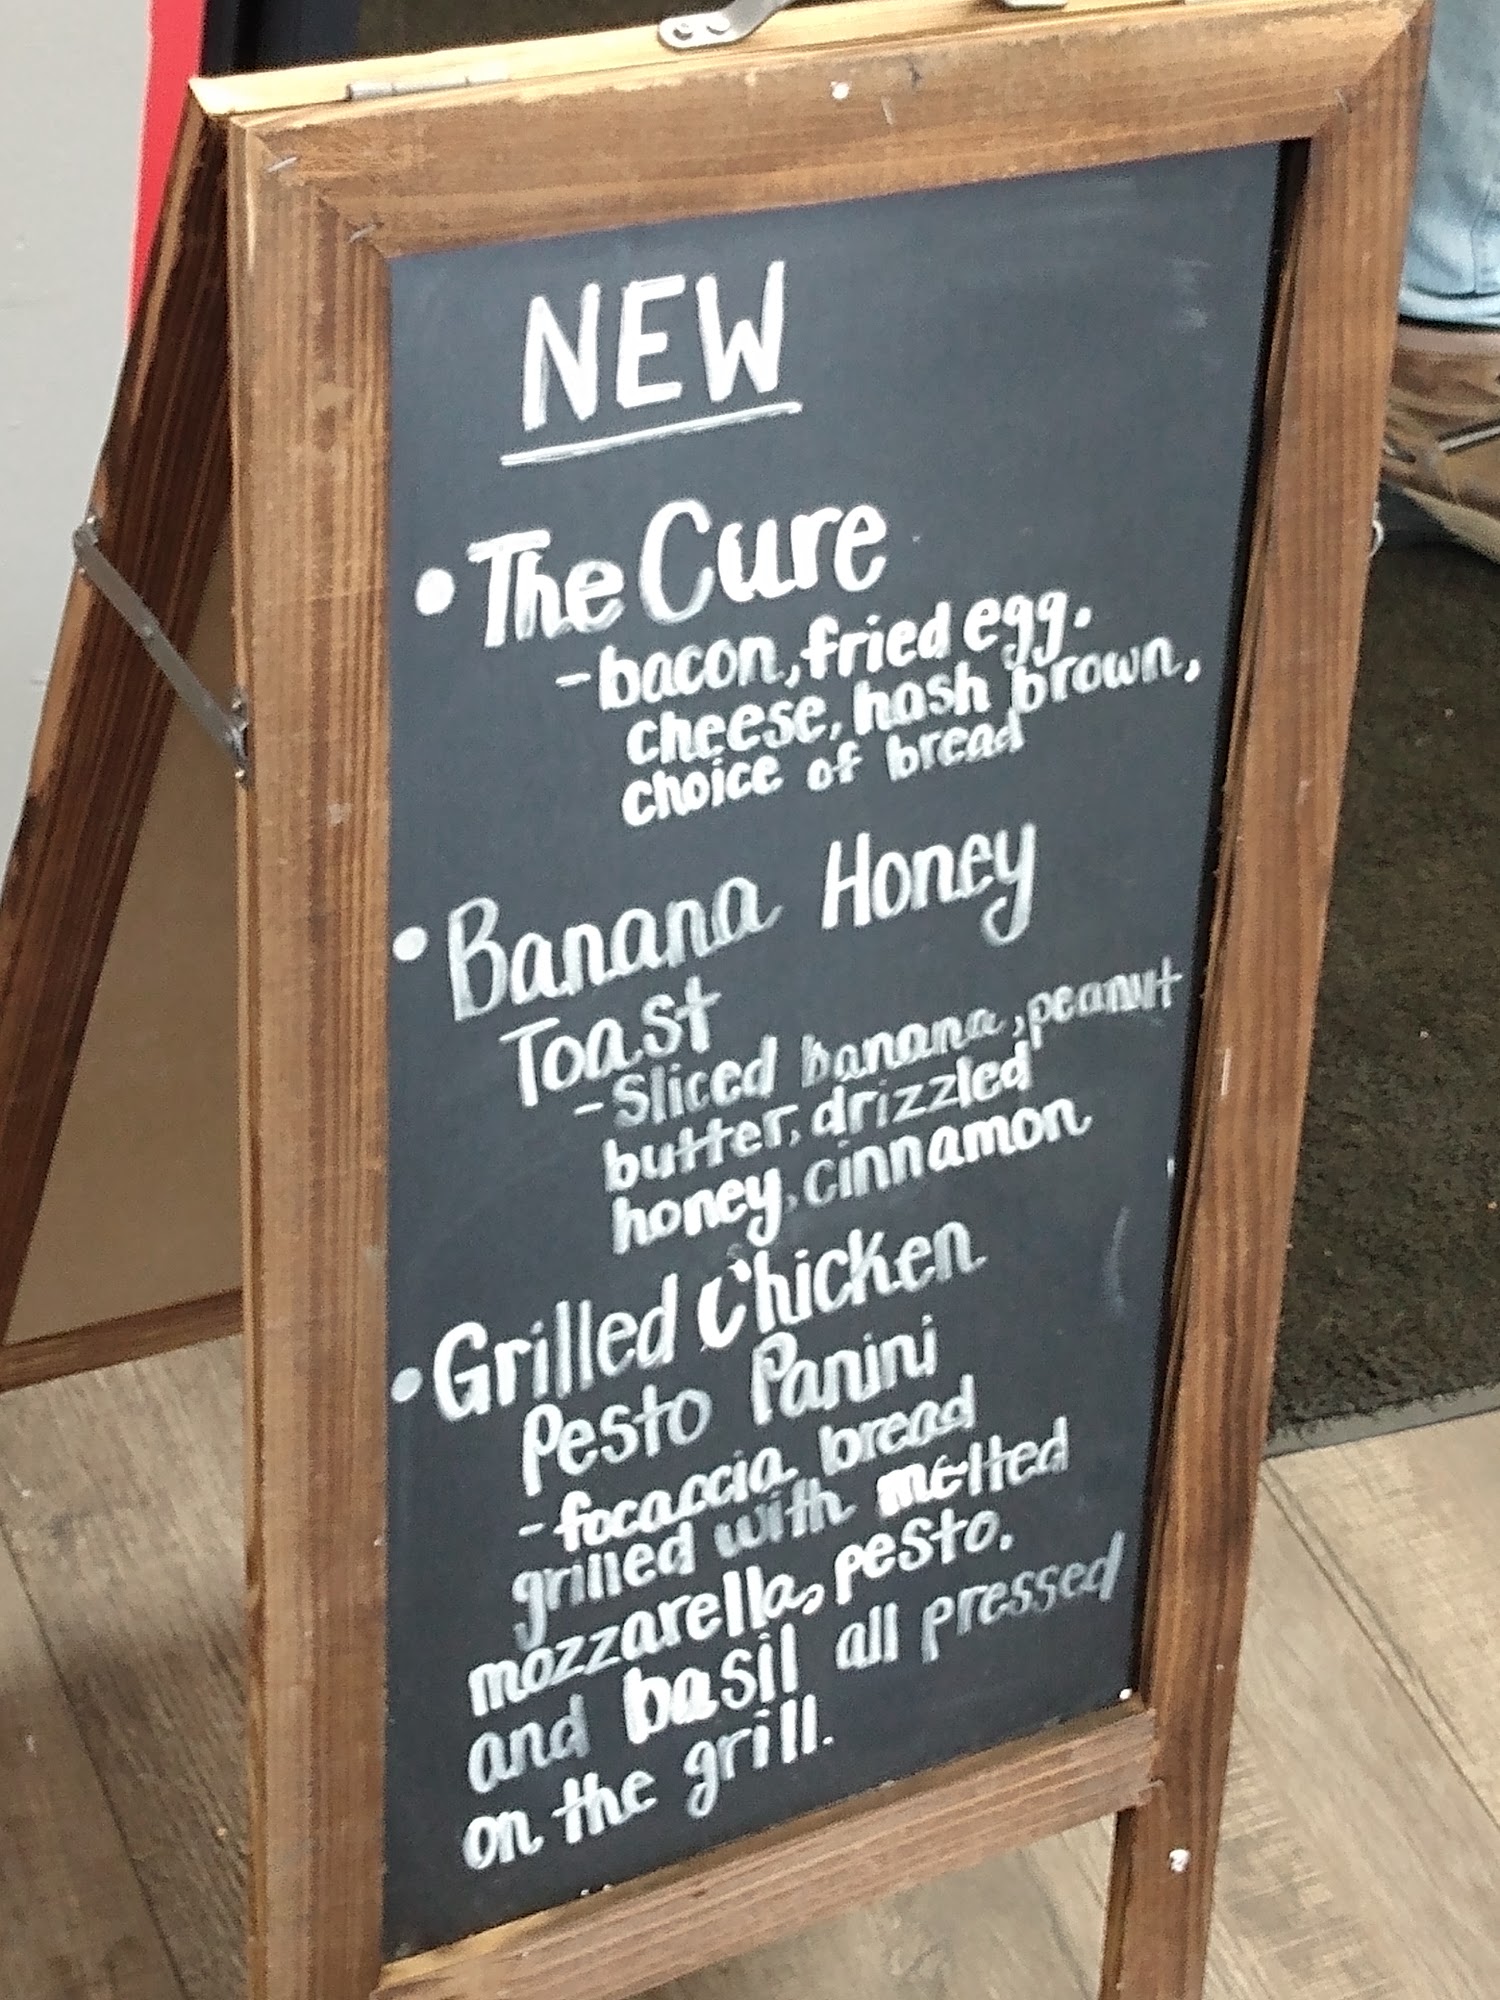 NEW
• The Cure
- bacon, fried egg.
cheese, hash brown,
choice of bread
• Banana Honey
Toast
- Sliced banana, peanut
butter, drizzled
honey, cinnamon
• Grilled Chicken
Pesto Panini
- focaccia bread
grilled with melted
mozzarella, pesto.
and basil all pressed
on the grill.